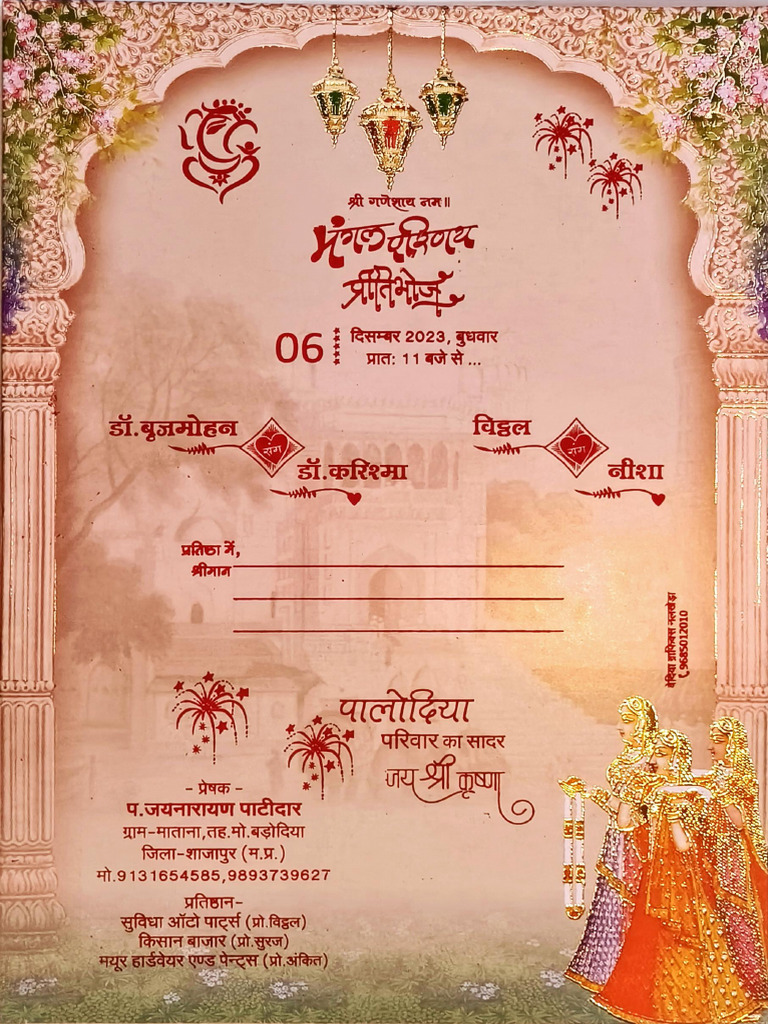 श्री गणेशाय नमः॥
मंगल परिणय
प्रीतिभोज
06 दिसम्बर 2023, बुधवार
प्रातः 11 बजे से ...
डॉ.बृजमोहन
संग
डॉ.करिश्मा
विठ्ठल
संग
नीशा
प्रतिष्ठा में,
श्रीमान
वेदिया ग्राफिक्स नलखेड़ा
9685012010
पालोदिया
परिवार का सादर
जय श्री कृष्णा
- प्रेषक -
प.जयनारायण पाटीदार
ग्राम-माताना,तह.मो.बड़ोदिया
जिला-शाजापुर (म.प्र.)
मो.9131654585,9893739627
प्रतिष्ठान-
सुविधा ऑटो पार्ट्स (प्रो.विठ्ठल)
किसान बाजार (प्रो.सुरज)
मयूर हार्डवेयर एण्ड पेन्ट्स (प्रो.अंकित)